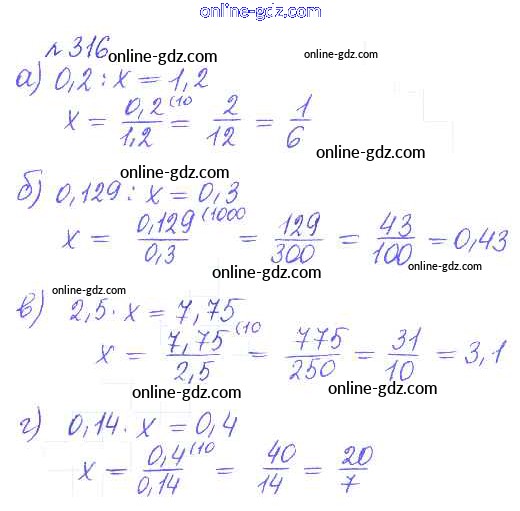 online-gdz.com
№ 316 online-gdz.com
а) 0,2 : x = 1,2
x = 0,2 (10 / 1,2 = 2/12 = 1/6
online-gdz.com
online-gdz.com
б) 0,129 : x = 0,3
x = 0,129 (1000 / 0,3 = 129/300 = 43/100 = 0,43
online-gdz.com
online-gdz.com
online-gdz.com
в) 2,5 · x = 7,75
x = 7,75 (10 / 2,5 = 775/250 = 31/10 = 3,1
online-gdz.com
online-gdz.com
online-gdz.com
г) 0,14 · x = 0,4
x = 0,4 (10 / 0,14 = 40/14 = 20/7
online-gdz.com
online-gdz.com